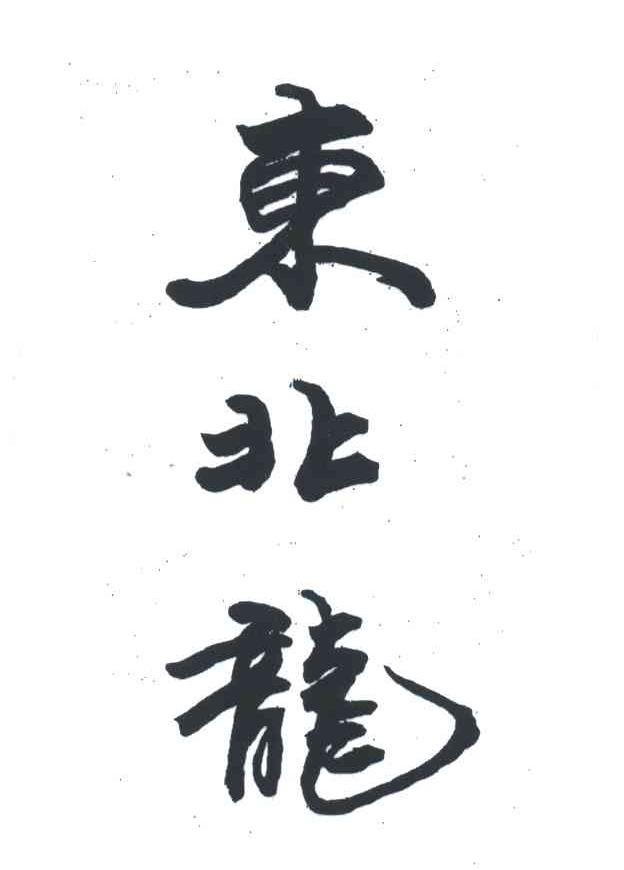 東北龍